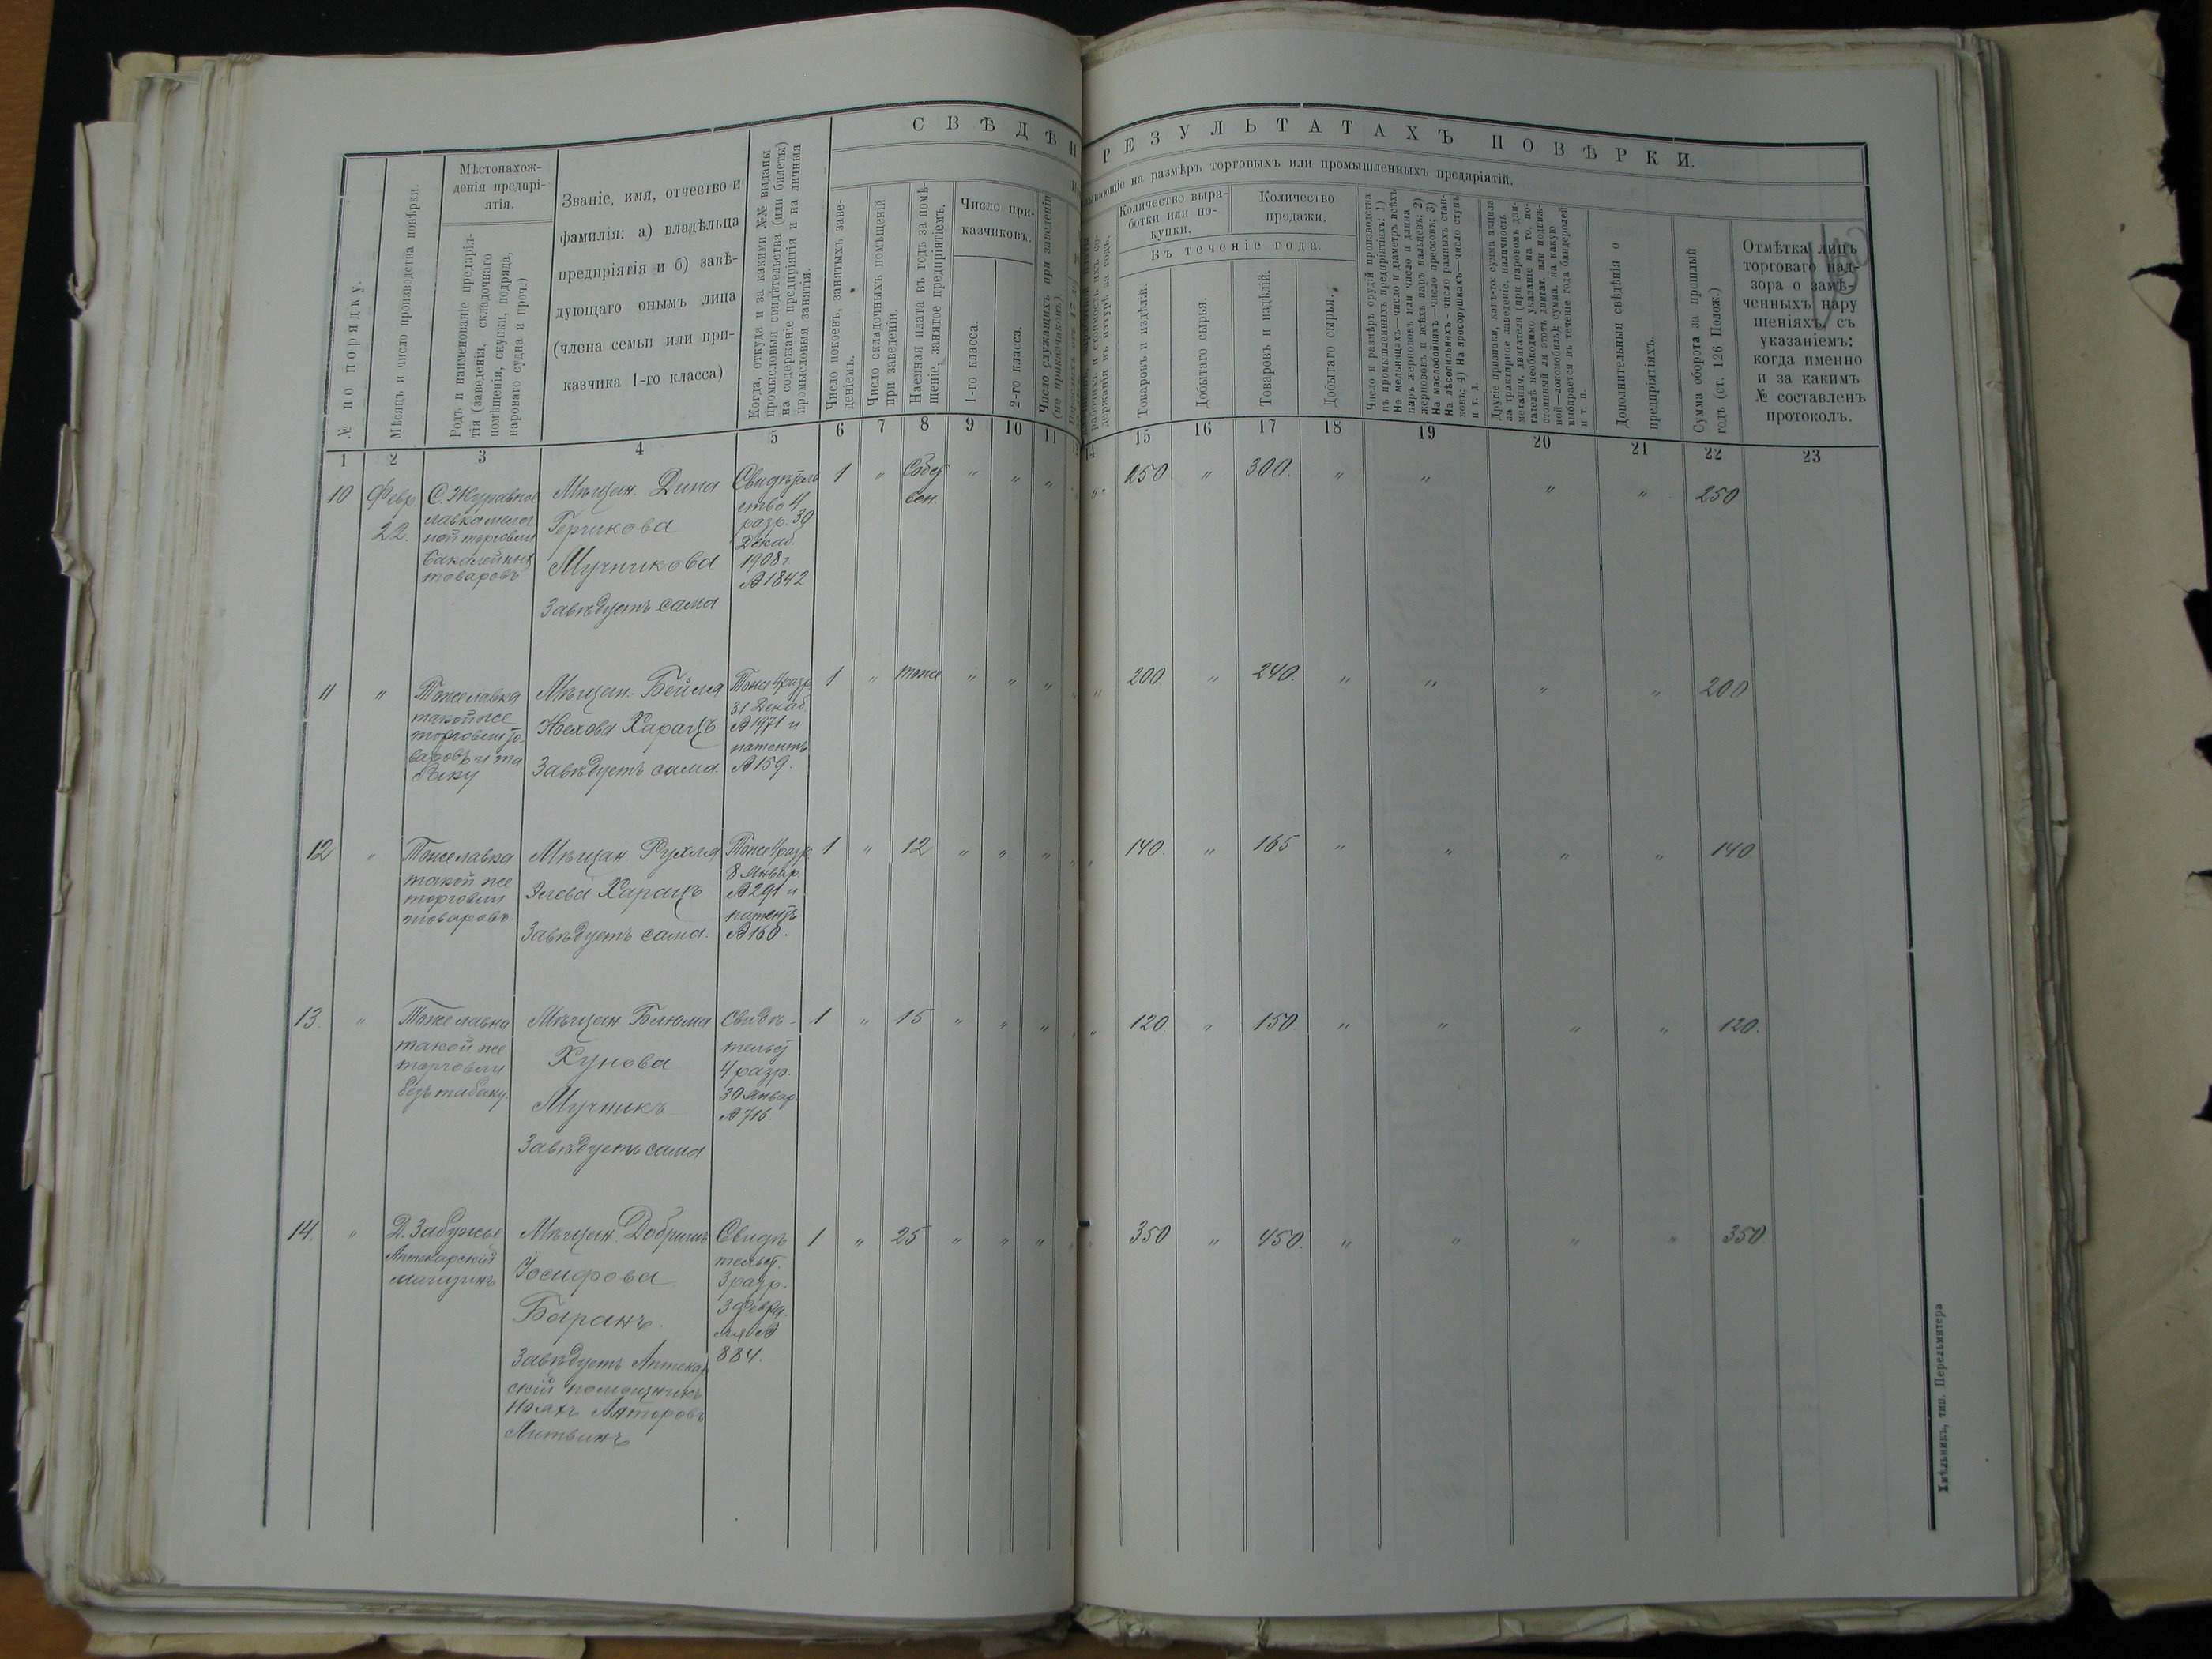 СВѢДѢН РЕЗУЛЬТАТАХЪ ПОВѢРКИ.
на размѣръ торговыхъ или промышленныхъ предпріятій.
№ по порядку.
Мѣсяцъ и число производства повѣрки.
Мѣстонахож-
денія предпрі-
ятія.
Родъ и наименованіе предпрія-
тія (заведенія, складочнаго
помѣщенія, скупки, подряда,
пароваго судна и проч.)
Званіе, имя, отчество и
фамилія: а) владѣльца
предпріятія и б) завѣ-
дующаго онымъ лица
(члена семьи или при-
казчика 1-го класса)
Когда, откуда и за какими №№ выданы
промысловыя свидѣтельства (или билеты)
на содержаніе предпріятія и на личныя
промысловыя занятія.
Число покоевъ, занятыхъ заве-
деніемъ.
Число складочныхъ помѣщеній
при заведеніи.
Наемная плата въ годъ за помѣ-
щеніе, занятое предпріятіемъ.
Число при-
казчиковъ.
1-го класса.
2-го класса.
Число служащихъ при заведеніи
(не приказчиковъ)
Количество выра-
ботки или по-
купки,
Количество
продажи,
Въ теченіе года.
Товаровъ и издѣлій.
Добытаго сырья.
Товаровъ и издѣлій.
Добытаго сырья.
Число и размѣръ орудій производства
въ промышленныхъ предпріятіяхъ: 1)
На мельницахъ—число и діаметръ всѣхъ
паръ жернововъ или число и длина
жернововъ и всѣхъ паръ вальцевъ; 2)
На маслобойняхъ—число прессовъ; 3)
На лѣсопильняхъ - число рамныхъ стан-
ковъ; 4) На просорушкахъ—число ступъ
и т. д.
Другіе признаки, какъ-то: сумма акциза
за трактирное заведеніе, наличность
механич. двигателя (при паровомъ дви-
гателѣ необходимо указаніе на то, по-
стоянный ли этотъ двигат. или подвиж-
ной—локомобиль); сумма, на какую
выбирается въ теченіе года бандеролей
и т. п.
Дополнительныя свѣдѣнія о
предпріятіяхъ.
Сумма оборота за прошлый
годъ (ст. 126 Полож.)
Отмѣтка лицъ
торговаго над-
зора о замѣ-
ченныхъ нару
шеніяхъ, съ
указаніемъ:
когда именно
и за какимъ
№ составленъ
протоколъ.
1 2 3 4 5 6 7 8 9 10 11 14 15 16 17 18 19 20 21 22 23
10 Февр. С. Журавное Мѣщан. Дина Свидѣтель 1 " Собст " " " " 250 " 300. " " " " 250
22. лавка мелоч Герчикова ство 4 вен.
ной торговли разр. 30
бакалейныхъ Мучникова Декаб.
товаровъ 1908 г
№ 1842
Завѣдуетъ сама
11 " Тоже лавка Мѣщан. Бейла Тоже 4 разр 1 " тоже " " " " 200 " 240. " " " " 200
такой же 31 Декаб.
торговли то- Ноехова Харацъ № 1971 и
варовъ и та патентъ
баку Завѣдуетъ сама № 159.
12 " Тоже лавка Мѣщан. Рухля Тоже 4 разр. 1 " 12 " " " " 140. " 165 " " " " 140
такой же 8 Январ.
торговли Элева Харацъ № 291 и
товаровъ патентъ
Завѣдуетъ сама. № 160.
13. " Тоже лавка Мѣщан Блюма Свидѣ- 1 " 15 " " " " 120 " 150 " " " " 120.
такой же Хунова тельст
торговли 4 разр.
безъ табаку Мучникъ 30 Январ
№ 715.
Завѣдуетъ сама
14. " Д. Забужье Мѣщан. Добришъ Свидѣ 1 " 25 " " " 350 " 450. " " " " 350.
Аптекарскій Іосифова тельст.
магазинъ 3 разр.
Баранъ. 3 Февра-
ля №
Завѣдуетъ Аптекар 884.
скій помощникъ
Ноахъ
Литвинъ
Хмѣльникъ, тип. Перельмитера